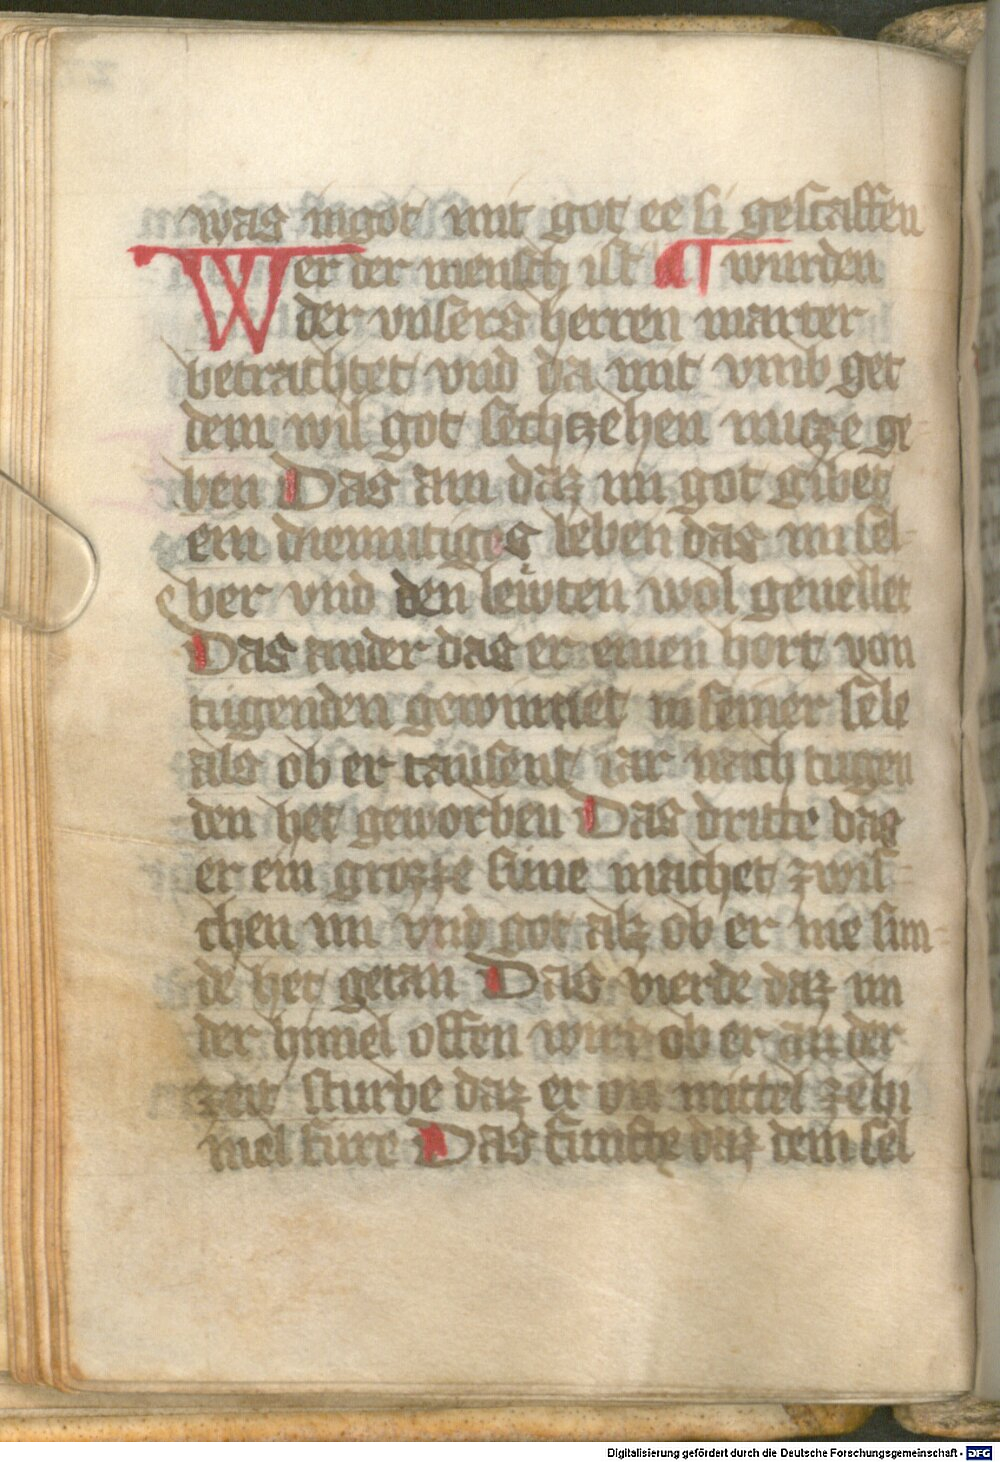 was in got mit got ee si gescaffen
Wer der mensch ist ¶ wurden
der vnsers herren marter
betrachtet vnd da mit vmb get
dem wil got sechczehen nucze ge=
ben Das ain daz im got gibet
ein diemutiges leben das im sel=
ber vnd den lewten wol geuellet
Das ander das er einen hort von
tugenden gewinnet in seiner sele
als ob er tausent iar nach tugen
den het geworben Das dritte das
er ein grozze sune machet zwis=
chen im vnd got alz ob er nie sun=
de het getan Das vierde daz im
der himel offen wird ob er an der
zeit sturbe daz er on mittel ze hi
mel fure Das funfte daz dem sel
Digitalisierung gefördert durch die Deutsche Forschungsgemeinschaft - DFG